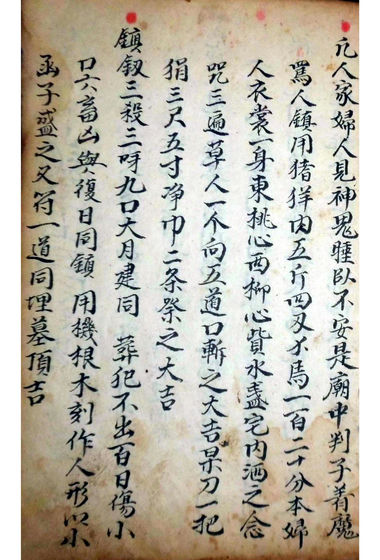 凢人家婦人見神鬼睡臥不安是廟中判子着魔
罵人鎮用猪羊肉五斤四叉才馬一百二十分本婦
人衣裳一身東桃心西柳心貲水盞宅内洒之念
咒三遍草人一个向五道口斬之大吉杲刀一把
狷三尺五寸净巾二条祭之大吉
鎮釼三殺三呼九口大月建同 葬犯不出百日傷小
口六畜凶與復日同鎮 用機根木刻作人形以小
函子盛之又符一道同埋墓頂吉